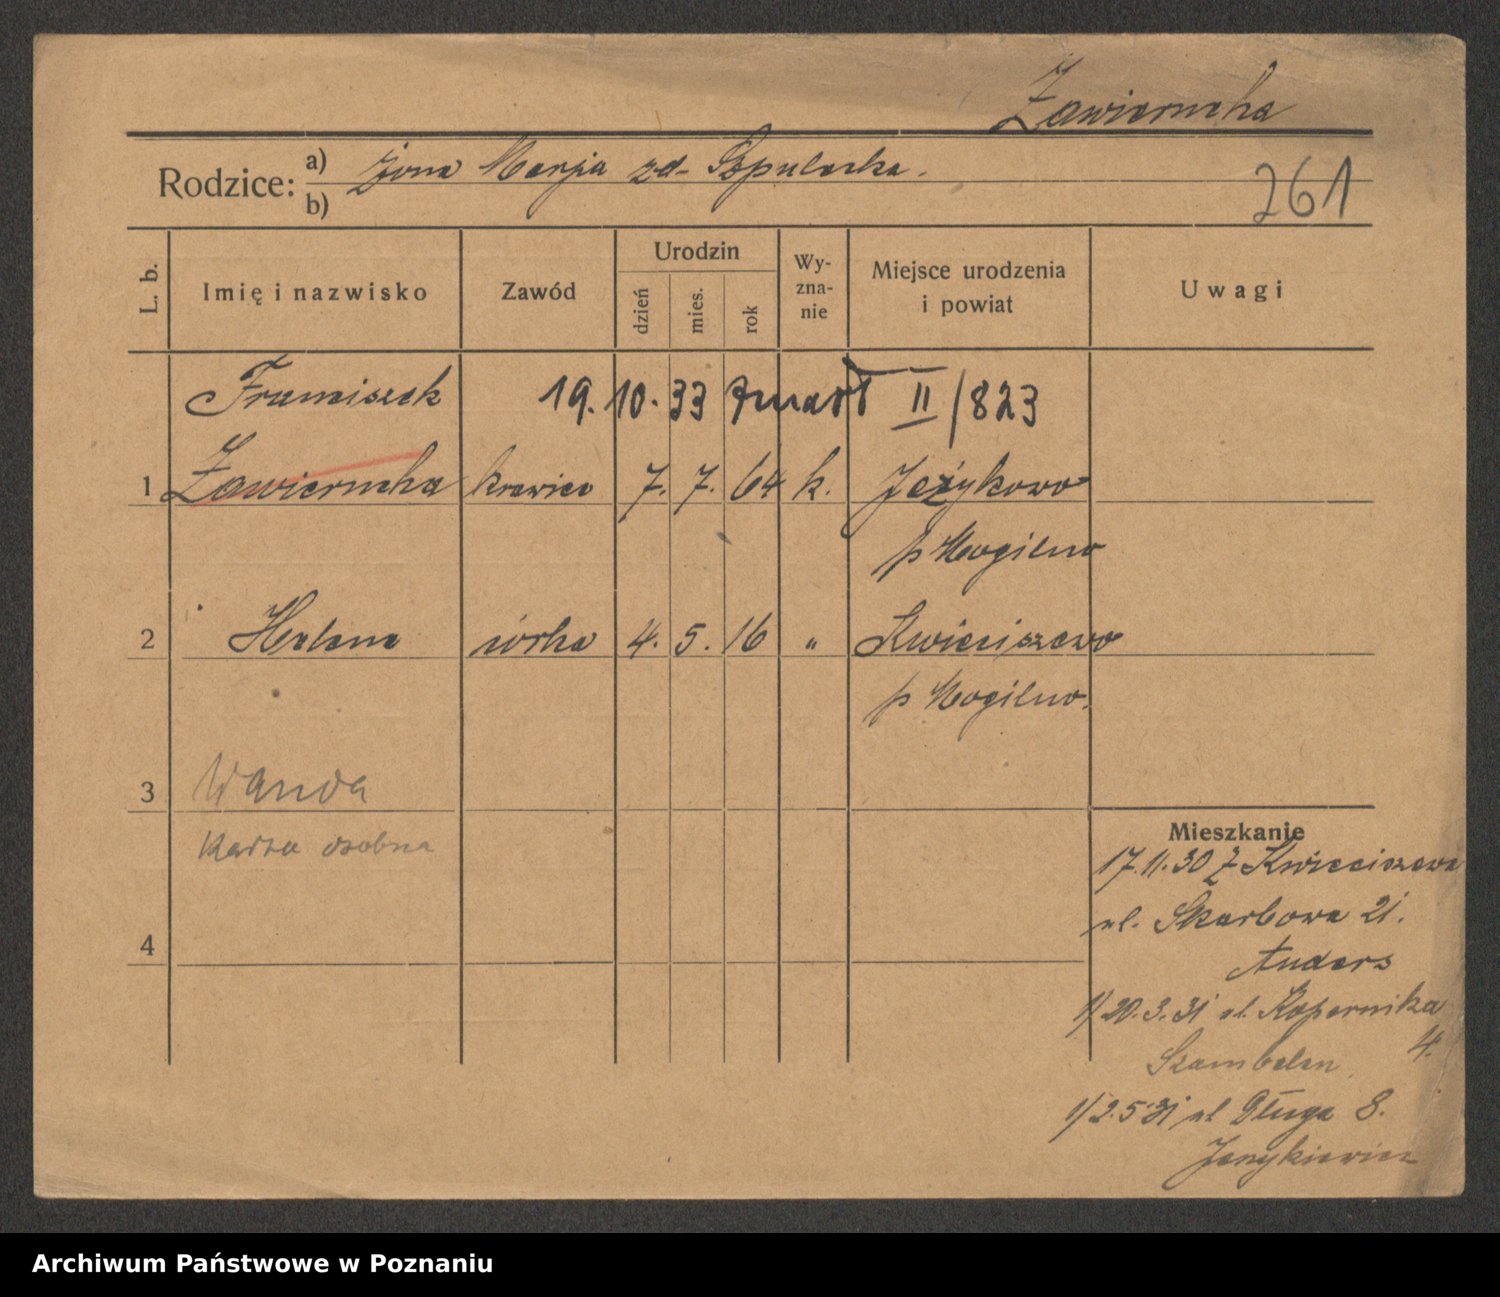 Zawierucha
Rodzice: a) żona Marja zd. Szpulecka.
b)
261
L. b.
Imię i nazwisko
Zawód
Urodzin
dzień
mies.
rok
Wy-
zna-
nie
Miejsce urodzenia
i powiat
Uwagi
Franciszek 19. 10. 33 zmarł II/823
1 Zawierucha krawiec 7. 7. 64 k. Jeżykowo
p Mogilno
2 Helena córka 4. 5. 16 " Kwieciszewo
p Mogilno.
3 Wanda
karta osobna
4
Mieszkanie
17.11.30 z Kwieciszewa
ul. Skarbowa 21.
Anders
1/20.3.31 ul. Kopernika
4.
Szambelan
1/2.5 31 ul Długa 8.
Archiwum Państwowe w Poznaniu